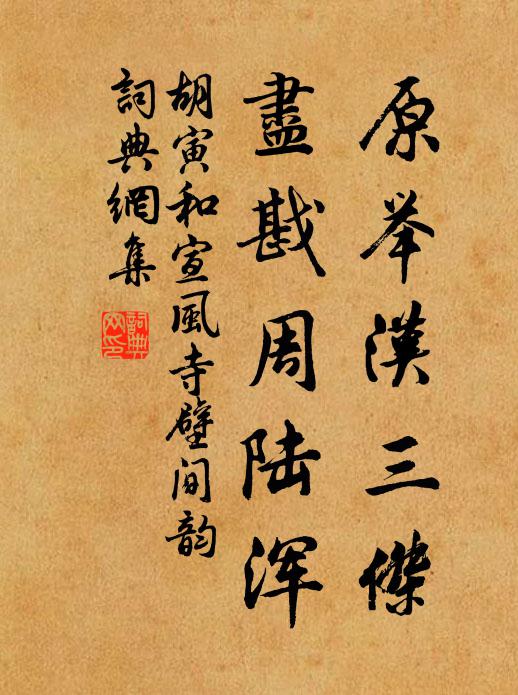 原举漢三傑
盡戡周陆浑
胡寅和宣風寺壁间韵
詞典網集
詞典網印